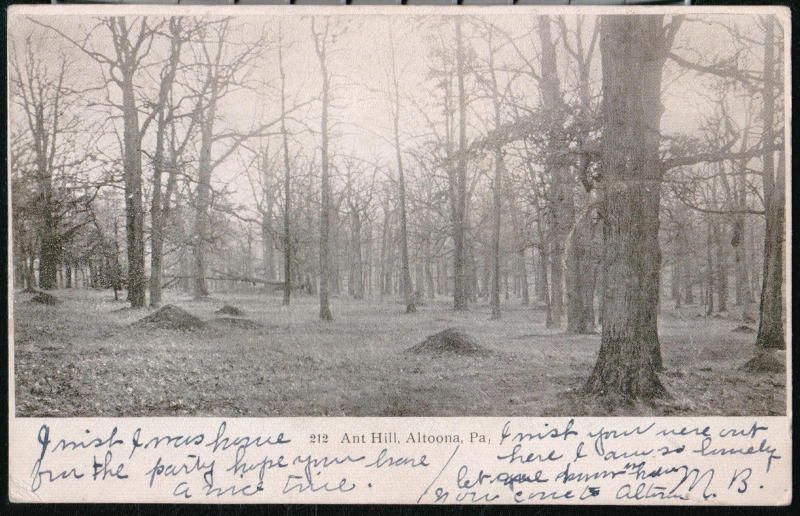 212 Ant Hill, Altoona, Pa,
I wish I was home
for the party hope your have
a nice time.
I wish your were out
here I am so lonely
let me know when
you come to Altoona M. B.